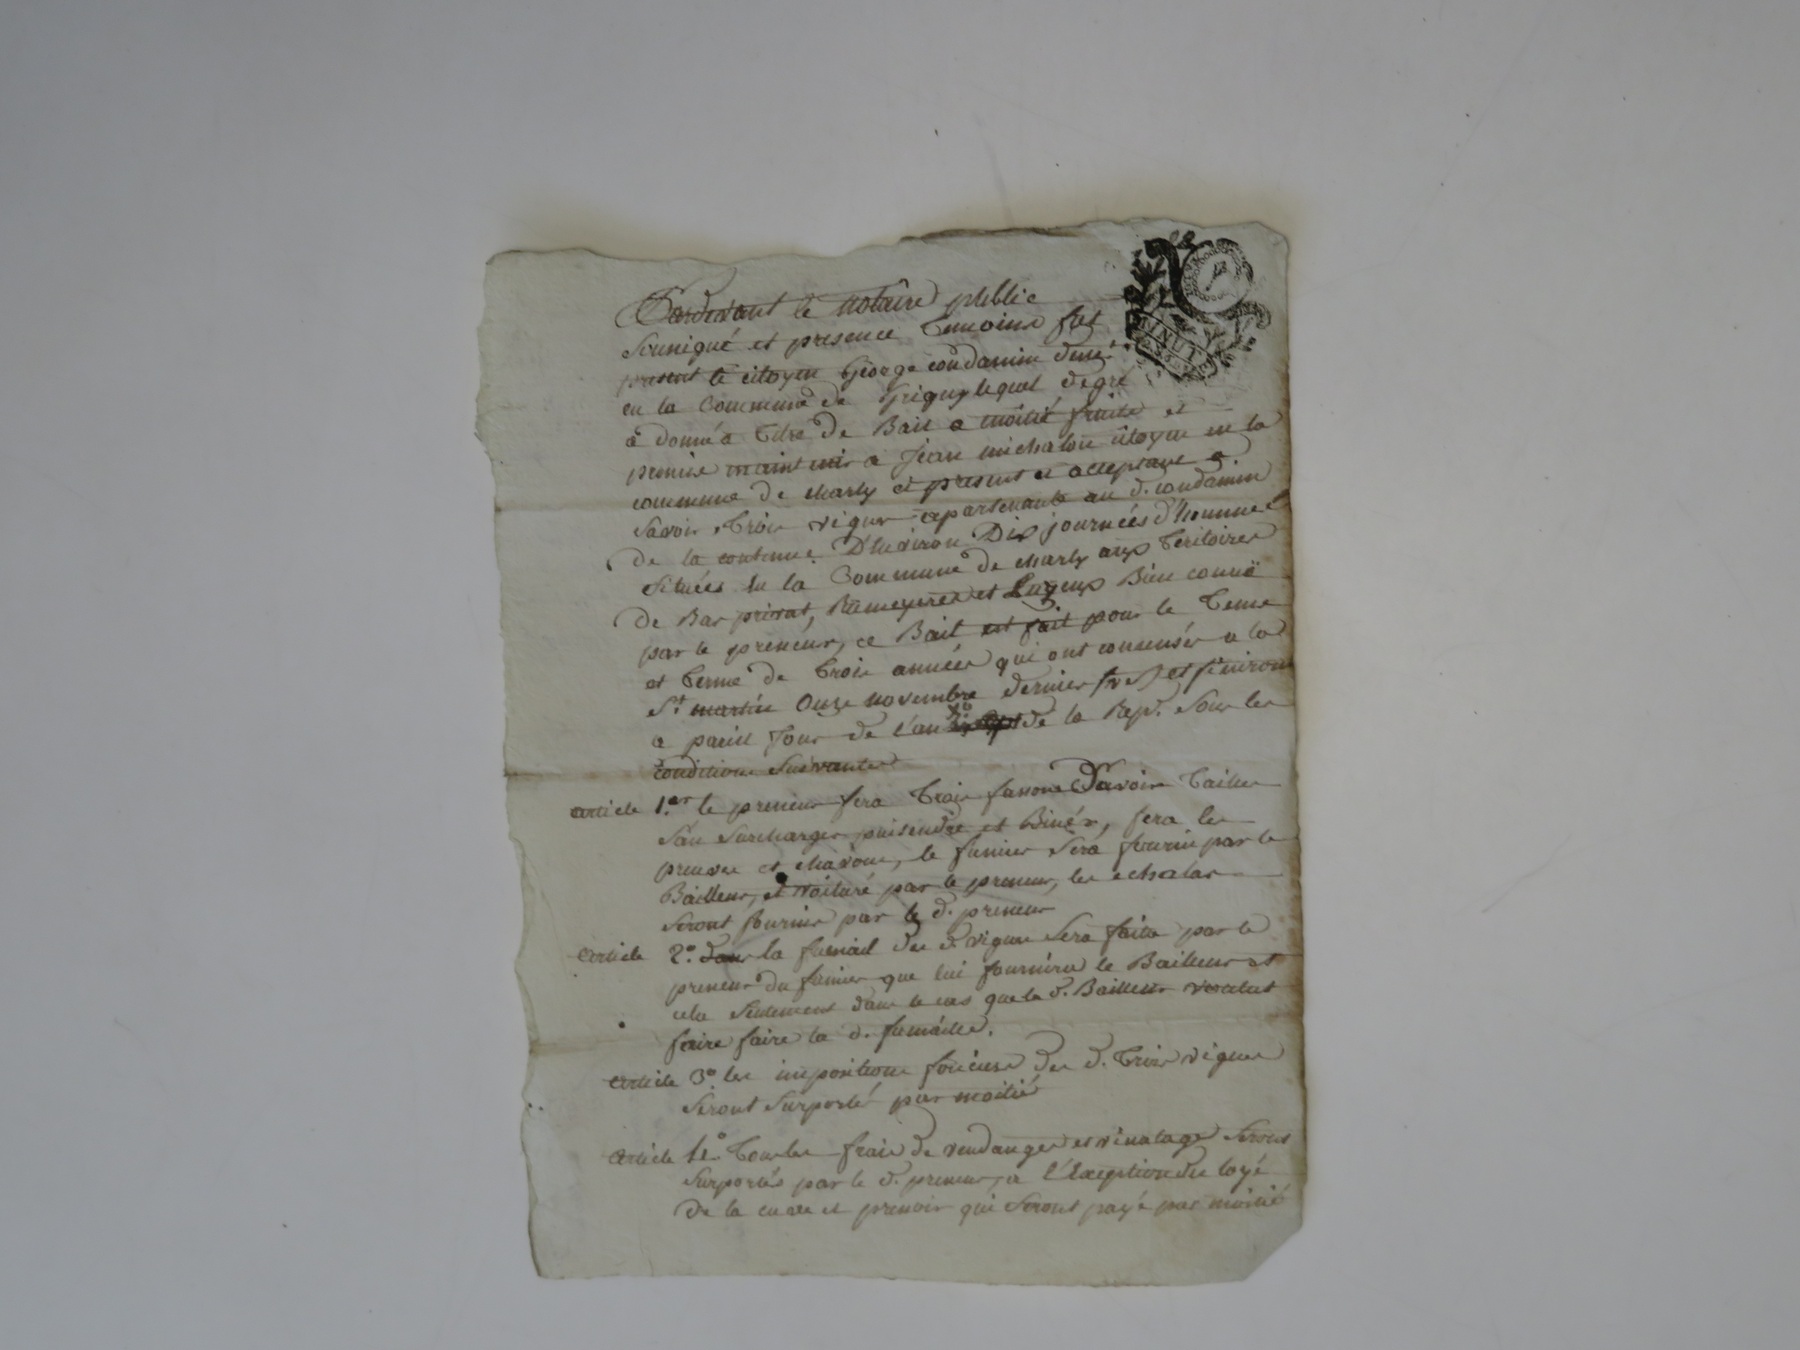 Pardevant le notaire public
Sousigné et presence Temoins fut
present le citoyen George Condamin deme.t
en la Commune de Grigny lequel de gré
a donné a titre de Bail a moitié fruits et
promis maintenir a Jean michalon citoyen en la
commune de charly et present et acceptant a
Savoir Trois vignes apartenants au d. condamin
de la contenue D'environ Dix journées d'homme
Situées en la Commune de charly aux Teritoires
de Bas privat, et Bien connüe
par le preneur, ce Bail est fait pour le Tems
et Terme de Trois années qui ont comensés a la
St martin Onze novembre dernier (v s) et finiront
a pareil Jour de l'an de la Rep. Sous les
conditions Suivantes
article 1.er le preneur fera Trois fassons Savoir Tailler
San Surcharger et Biner, fera les
preuves et chavons, le fumier Sera fourni par le
Bailleur, et voituré par le preneur, les echalas
Seront fournis par le d. preneur
article 2.o la fumail des d. vignes Sera faite par le
preneur du fumier que lui fournira le Bailleur et
cela Seulement dans le cas que le d. Bailleur voulut
faire faire la d. fumaille.
article 3o les impositions foncieres des d. Trois vignes
Seront Surportés par moitié
article 4o Tous les frais de vendanges et vinatage Seront
Surportés par le d. preneur, a l'Exception du loyé
de la cuve et pressoir qui Seront payé par moitié
MINUTE